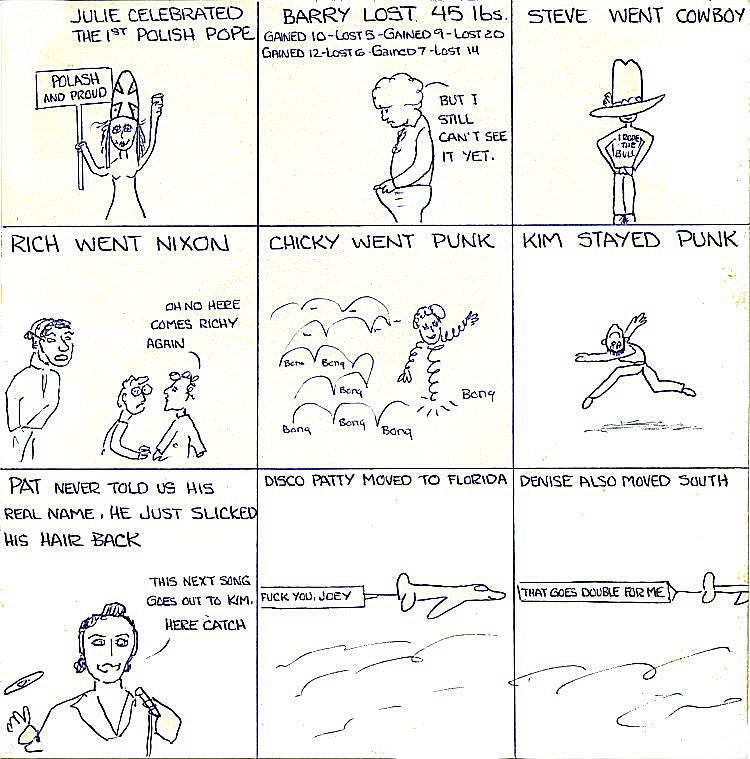 JULIE CELEBRATED
THE 1ST POLISH POPE
POLASH
AND PROUD
BARRY LOST 45 lbs.
GAINED 10-LOST 5-GAINED 9-LOST 20
GAINED 12-LOST 6-GAINED 7-LOST 14
BUT I
STILL
CAN'T SEE
IT YET.
STEVE WENT COWBOY
I RODE
THE
BULL
RICH WENT NIXON
OH NO HERE
COMES RICHY
AGAIN
CHICKY WENT PUNK
Bong Bong
Bong
Bong
Bong Bong Bong
KIM STAYED PUNK
PAT NEVER TOLD US HIS
REAL NAME, HE JUST SLICKED
HIS HAIR BACK
THIS NEXT SONG
GOES OUT TO KIM.
HERE CATCH
DISCO PATTY MOVED TO FLORIDA
FUCK YOU, JOEY
DENISE ALSO MOVED SOUTH
THAT GOES DOUBLE FOR ME